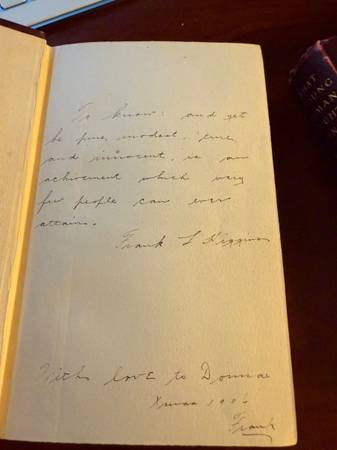 To know: and yet
be pure, modest, true
and innocent, is an
achievment which very
few people can ever
attain.
Frank L Higgins
With love to Donna
Xmas
Frank